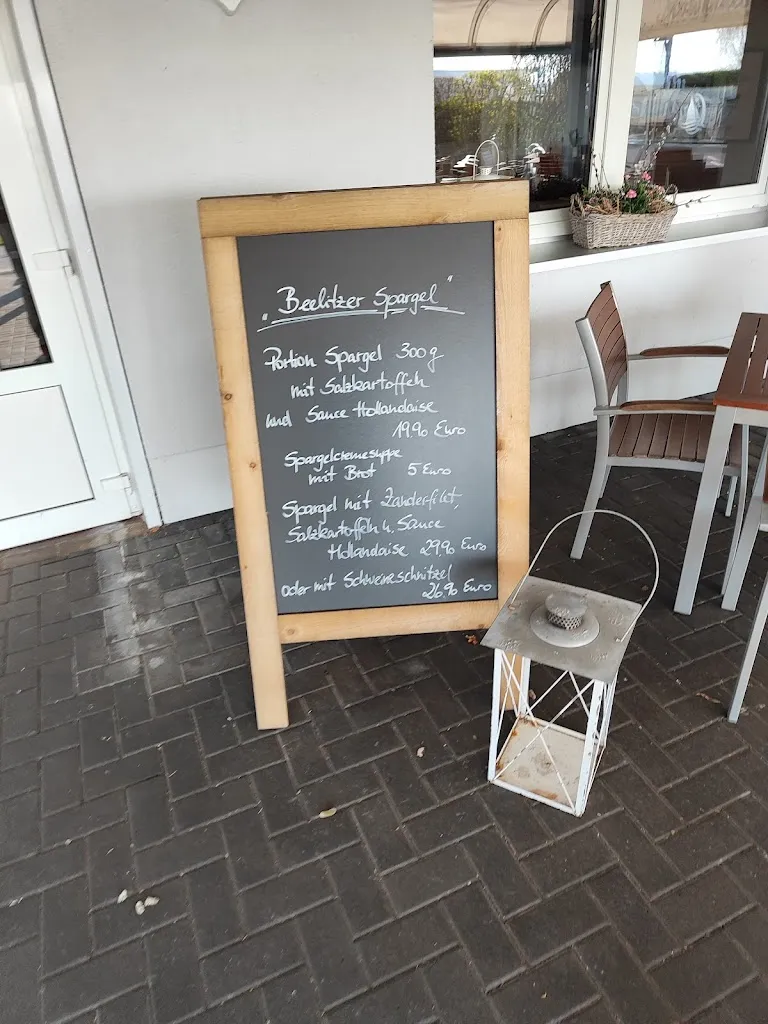 „Beelitzer Spargel“
Portion Spargel 300g
mit Salzkartoffeln
und Sauce Hollandaise
19.90 Euro
Spargelcremesuppe
mit Brot 5 Euro
Spargel mit Zanderfilet,
Salzkartoffeln u. Sauce
Hollandaise 29,90 Euro
oder mit Schweineschnitzel
26,90 Euro